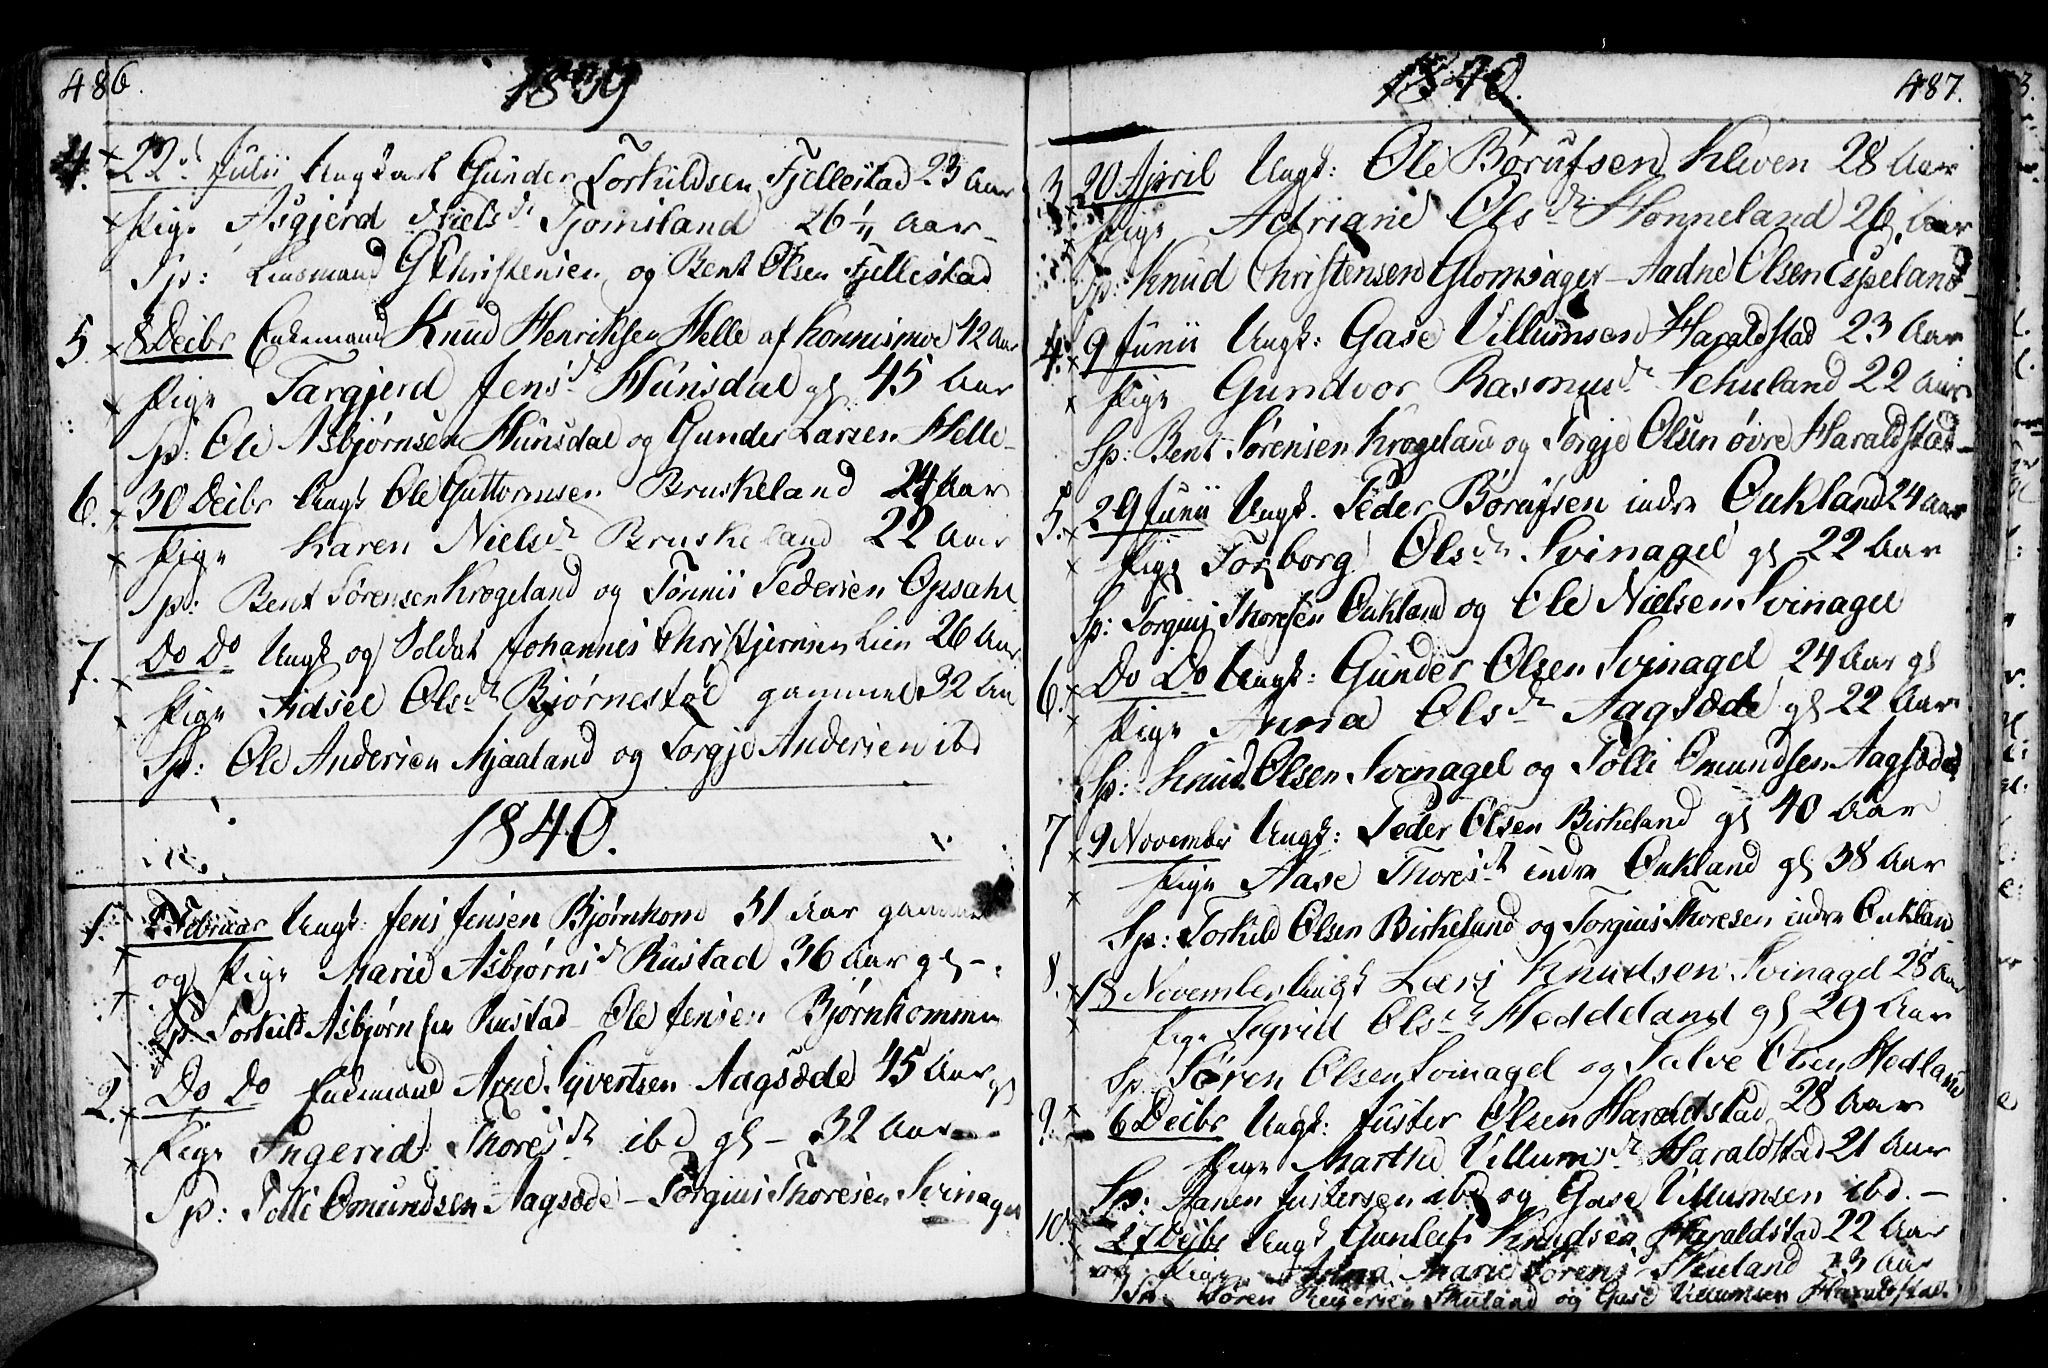 486.
1839
4. 22d Julii Ungkarl Gunder Torkildsen Fjellestad 23 Aar
Pige Asgjerd Nielsdr Tjomsland 26 Aar
Sp: Lensmand G Christensen og Bent Olsen Fjellestad
5. 8 Decbr Enkemand Knud Henriksen Helle af Konnismoe 42 Aar
Pige Targjerd Jensdr Hunsdal gl 45 Aar
Sp: Ole Asbjørnsen Hunsdal og Gunder Larsen Helle
6. 30 Decbr Ungk Ole Guttormsen Bruskeland 24 Aar
Pige Karen Nielsdr Bruskeland 22 Aar
Sp: Bent Sørensen Krogeland og Tønnis Pedersen Opsahl
7. Do Do Ungk og Soldat Johannes Christjernsen Lien 26 Aar
Pige Sidsel Olsdr Bjørnestøl gammel 32 Aar
Sp: Ole Andersen Mjaaland og Torgje Andersen ibd
1840.
1. Februar Ungk: Jens Jensen Bjørnkom 31 Aar gammel
og Pige Marie Asbjørnsd Rustad 36 Aar gl
Sp: Torkild Asbjørnsen Rustad - Ole Jensen Bjørnkommen
2. Do Do Enkemand Arne Syvertsen Aagsæde 45 Aar gl
Pige Ingerid Thoresdr ibd gl - 32 Aar
Sp: Tolli Omundsen Aagsæde - Torgius Thoresen Svinagel
1840.
487.
3. 20 April Ungk: Ole Børufsen Kleven 28 Aar
Pige Adriane Olsdr Honneland 26 Aar
Sp: Knud Christensen Glomsager - Aadne Olsen Espeland
4. 9 Junii Ungk: Gase Villumsen Haraldstad 23 Aar
Pige Gundvor Rasmusdr Schuland 22 Aar
Sp: Bent Sørensen Krogeland og Torgje Olsen øvre Haraldstad
5. 29 Junii Ungk. Peder Børufsen indre Øukland 24 Aar
Pige Torborg Olsdr Svinagel gl 22 Aar
Sp: Torgius Thoresen Øukland og Ole Nielsen Svinagel
6. Do Do Ungk: Gunder Olsen Svinagel 24 Aar gl
Pige Anna Olsdr Aagsæde gl 22 Aar
Sp: Knud Olsen Svinagel og Tolli Omundsen Aagsæde
7 9 November Ungk: Peder Olsen Birkeland gl 40 Aar
Pige Aase Thoresdr indre Øukland gl 38 Aar
Sp: Torkild Olsen Birkeland og Torgius Thoresen indre Øukland
8. 18 November Ungk Lars Knudsen Svinagel 28 Aar
Pige Sigrid Olsdr Heddeland gl 29 Aar
Sp Søren Olsen Svinagel og Salve Olsen Hedland
9. 6 Decbr Ungk: Juster Olsen Haraldstad 28 Aar
Pige Marthe Villumsdr Haraldstad 21 Aar
Sp: Aanen Justersen ibd og Gase Villumsen ibd. -
10. 27 Decbr Ungk Gunleik Knudsen Haraldstad 22 Aar
Pige Anna Marie Sørensd Skuland 23 Aar
Sp: Søren Skuland og Gase Villumsen Haraldstad.